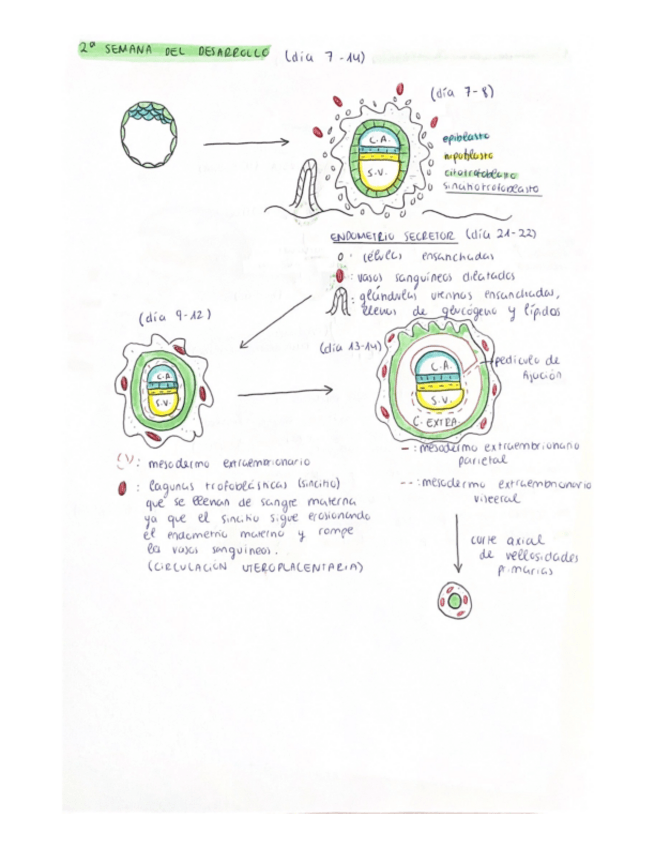 2ª SEMANA DEL DESARROLLO (día 7-14)
(día 7-8)
C.A.
S.V.
epiblasto
hipoblasto
citotrofoblasto
sincitiotrofoblasto
ENDOMETRIO SECRETOR (día 21-22)
o : células ensanchadas
: vasos sanguíneos dilatados
: glándulas uterinas ensanchadas,
llenas de glucógeno y lípidos
(día 9-12)
C.A.
S.V.
(día 13-14)
C.A.
S.V.
C. EXTRA.
pedículo de
fijación
: mesodermo extraembrionario
: lagunas trofoblásticas (sincitio)
que se llenan de sangre materna
ya que el sincitio sigue erosionando
el endometrio materno y rompe
los vasos sanguíneos.
(CIRCULACIÓN UTEROPLACENTARIA)
- : mesodermo extraembrionario
parietal
-- : mesodermo extraembrionario
visceral
corte axial
de vellosidades
primarias